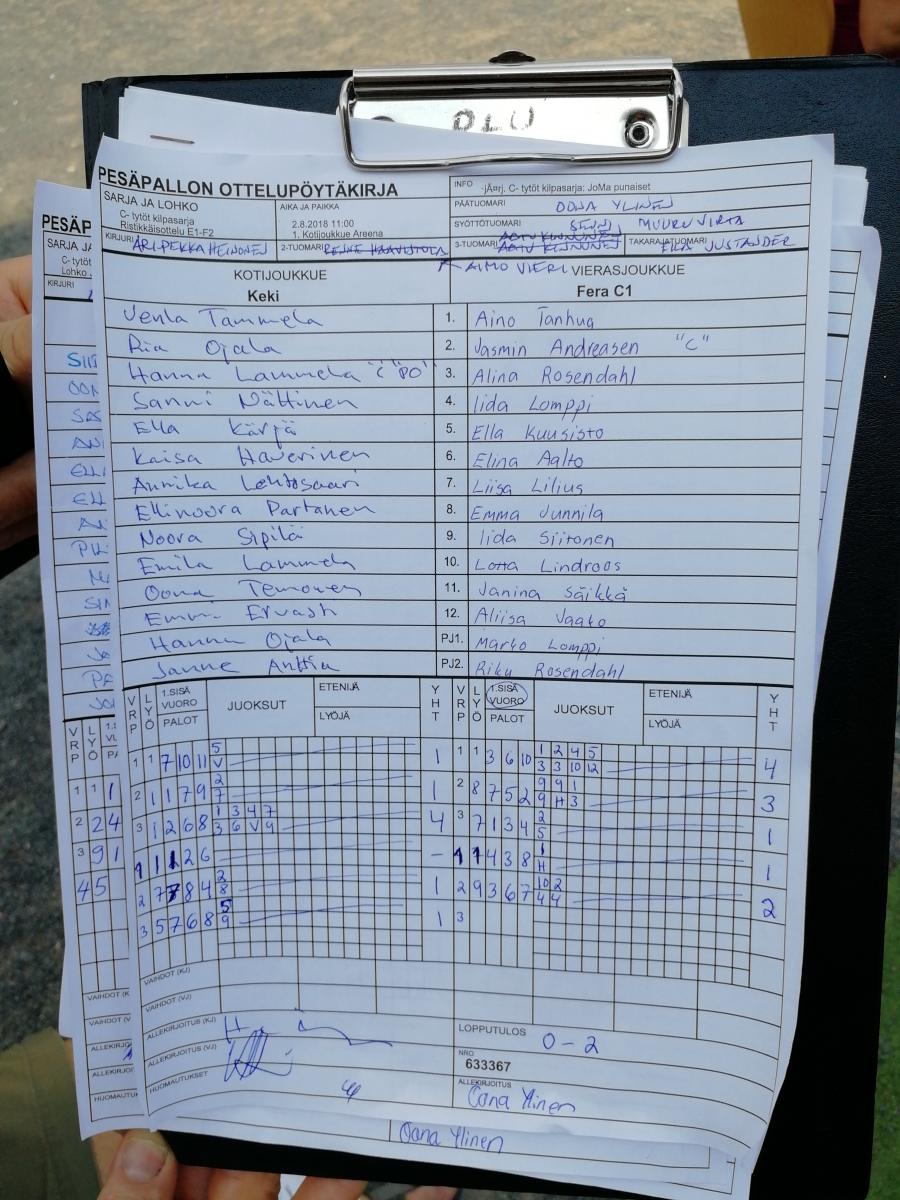 OLU
PESÄPALLON OTTELUPÖYTÄKIRJA
SARJA JA LOHKO
C- tytöt kilpasarja
Ristikkäisottelu E1-F2
AIKA JA PAIKKA
2.8.2018 11:00
1. Kotijoukkue Areena
INFO -jÄ¤rj. C- tytöt kilpasarja: JoMa punaiset
PÄÄTUOMARI OONA YLINEN
SYÖTTÖTUOMARI SENNI MUURUVIRTA
KIRJURI ARI-PEKKA HEINONEN
2-TUOMARI
3-TUOMARI
TAKARAJATUOMARI EILA JUSTANDER
AIMO VIERI
KOTIJOUKKUE VIERASJOUKKUE
Keki Fera C1
Venla Tammela 1. Aino Tanhua
Ria Ojala 2. Jasmin Andreasen "C"
Hanna Lammela "C" PO 3. Alina Rosendahl
Sanni Nättinen 4. Iida Lomppi
Ella Kärjä 5. Ella Kuusisto
Kaisa Haverinen 6. Elina Aalto
Annika Lehtosaari 7. Liisa Lilius
Ellinoora Partanen 8. Emma Junnila
Noora Sipilä 9. Iida Siitonen
Emila Lammela 10. Lotta Lindroos
Oona Temonen 11. Janina Säikkä
Emmi Ervasti 12. Aliisa Vaato
Hannu Ojala PJ1. Marko Lomppi
Janne Anttila PJ2. Riku Rosendahl
VRP LYÖ 1.SISÄ VUORO PALOT JUOKSUT ETENIJÄ LYÖJÄ YHT VRP LYÖ 1.SISÄ VUORO PALOT JUOKSUT ETENIJÄ LYÖJÄ YHT
1 1 7 10 11 5 V 1 1 1 3 6 10 1 2 4 5 3 3 10 12 4
2 1 1 7 9 2 7 1 2 8 7 5 2 9 9 1 9 H 3 3
3 1 2 6 8 1 3 4 7 3 6 V 9 4 3 7 1 3 4 2 5 1
1 1 1 2 6 - 1 1 4 3 8 1 H 1
2 7 7 8 4 2 8 1 2 9 3 6 7 10 2 4 4 2
3 5 7 6 8 5 9 1 3
VAIHDOT (KJ)
VAIHDOT (VJ)
ALLEKIRJOITUS (KJ)
ALLEKIRJOITUS (VJ)
HUOMAUTUKSET
LOPPUTULOS 0-2
NRO
633367
ALLEKIRJOITUS
Oona Ylinen
Oona Ylinen